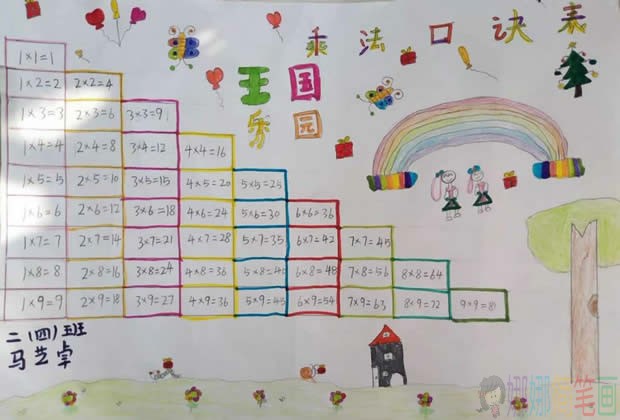 乘法口诀表
王国
乐园
1×1=1
1×2=2 2×2=4
1×3=3 2×3=6 3×3=9
1×4=4 2×4=8 3×4=12 4×4=16
1×5=5 2×5=10 3×5=15 4×5=20 5×5=25
1×6=6 2×6=12 3×6=18 4×6=24 5×6=30 6×6=36
1×7=7 2×7=14 3×7=21 4×7=28 5×7=35 6×7=42 7×7=45
1×8=8 2×8=16 3×8=24 4×8=36 5×8=40 6×8=48 7×8=56 8×8=64
1×9=9 2×9=18 3×9=27 4×9=36 5×9=45 6×9=54 7×9=63 8×9=72 9×9=81
二(四)班
马芝卓
娜娜笔画